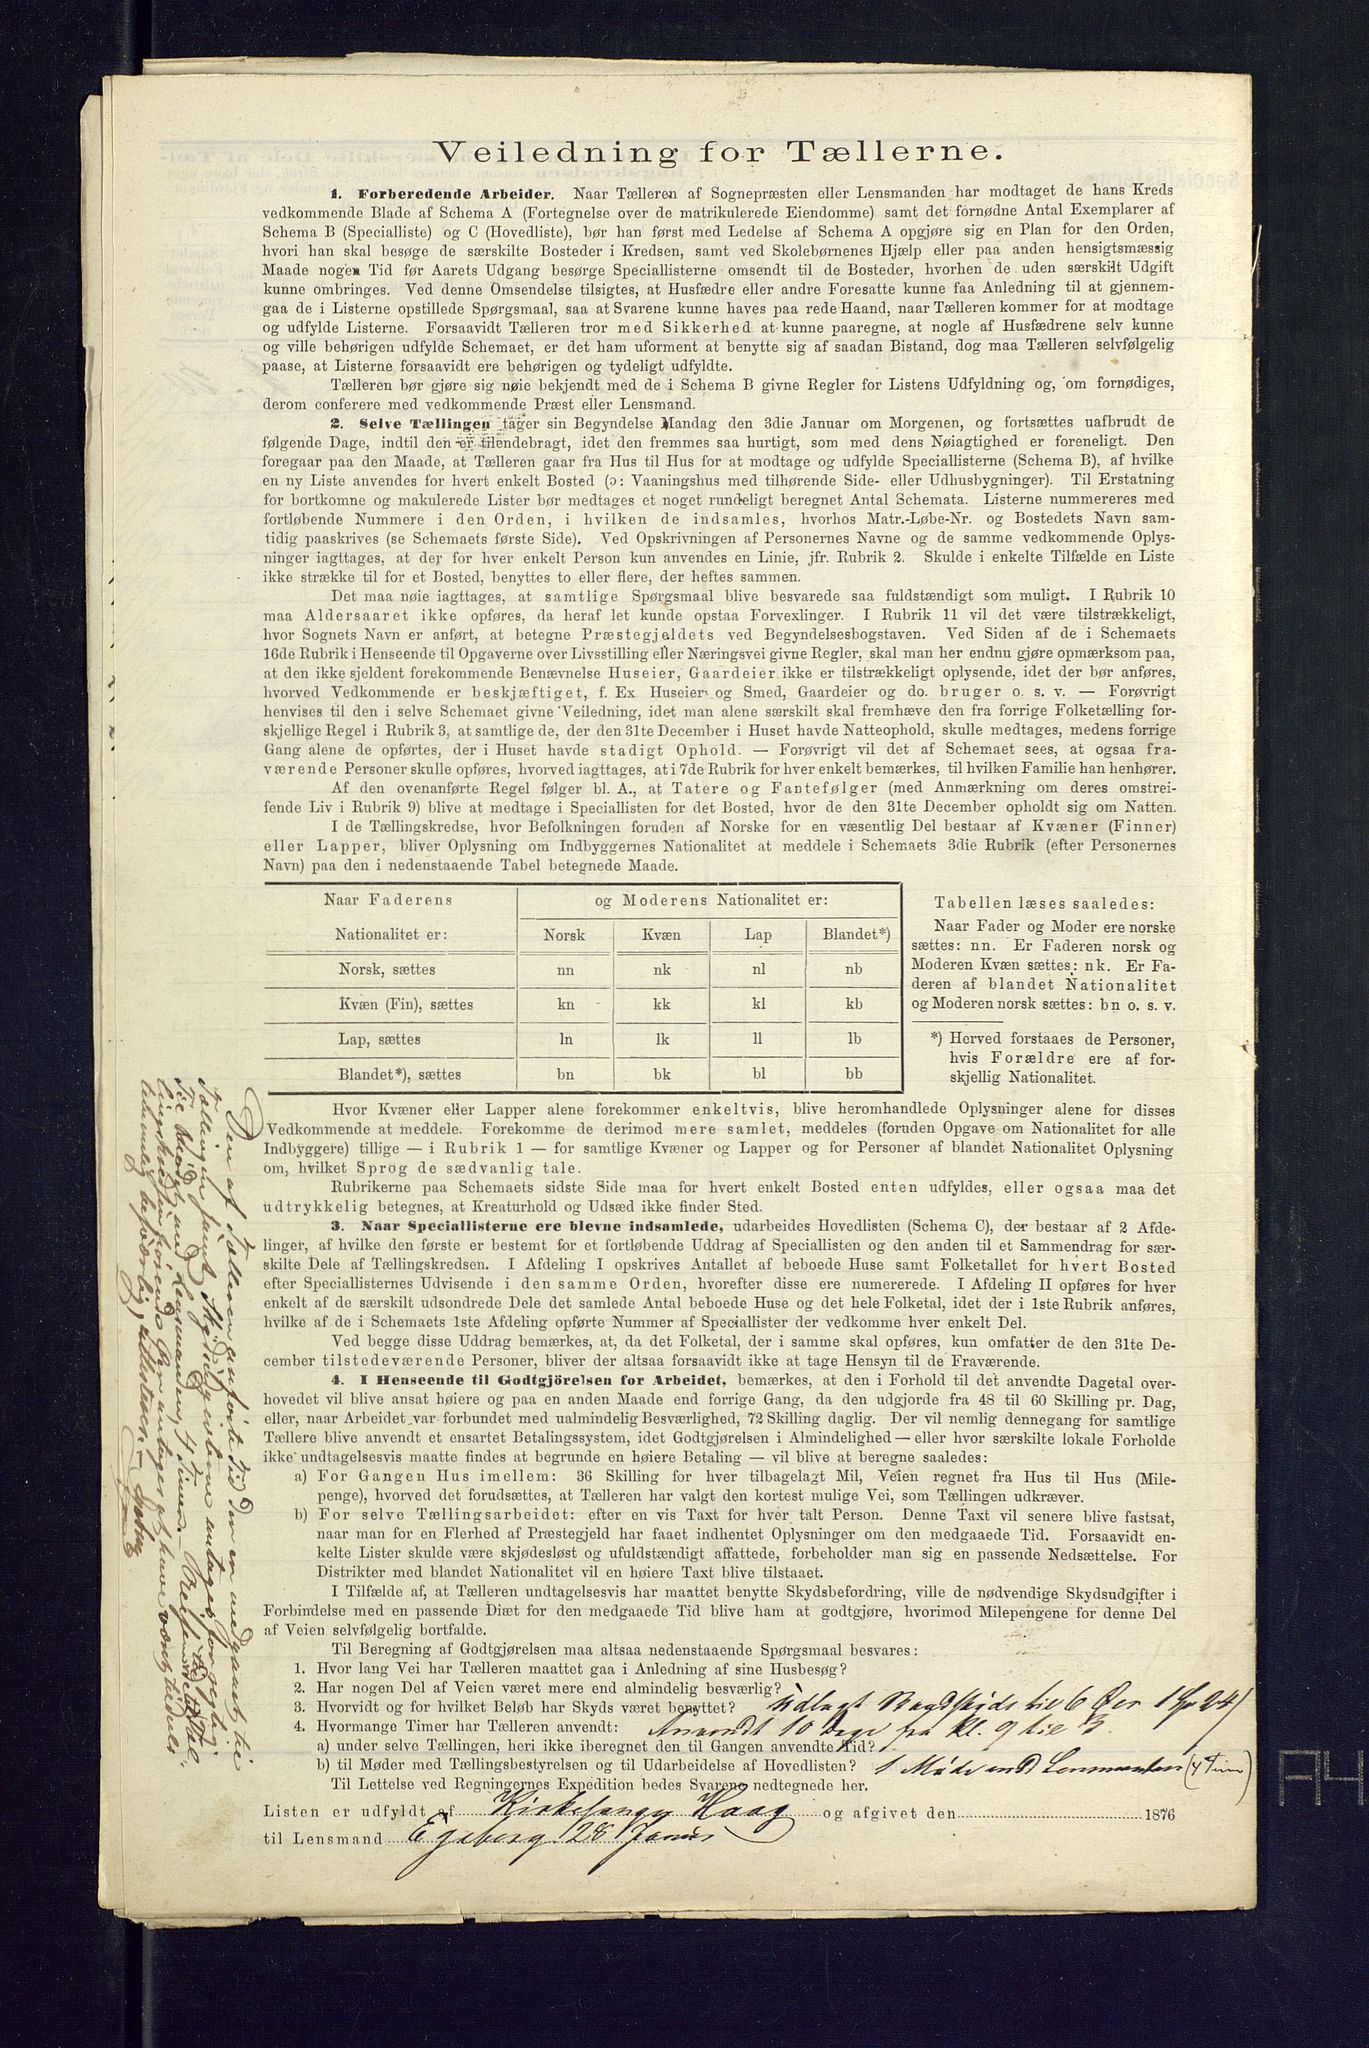 Veiledning for Tællerne.
1. Forberedende Arbeider. Naar Tælleren af Sognepræsten eller Lensmanden har modtaget de hans Kreds
vedkommende Blade af Schema A (Fortegnelse over de matrikulerede Eiendomme) samt det fornødne Antal Exemplarer af
Schema B (Specialliste) og C (Hovedliste), bør han først med Ledelse af Schema A opgjøre sig en Plan for den Orden,
hvori han skal besøge de særskilte Bosteder i Kredsen, samt ved Skolebørnenes Hjælp eller paa anden hensigtsmæssig
Maade nogen Tid før Aarets Udgang besørge Speciallisterne omsendt til de Bosteder, hvorhen de uden særskilt Udgift
kunne ombringes. Ved denne Omsendelse tilsigtes, at Husfædre eller andre Foresatte kunne faa Anledning til at gjennem-
gaa de i Listerne opstillede Spørgsmaal, saa at Svarene kunne haves paa rede Haand, naar Tælleren kommer for at modtage
og udfylde Listerne. Forsaavidt Tælleren tror med Sikkerhed at kunne paaregne, at nogle af Husfædrene selv kunne
og ville behørigen udfylde Schemaet, er det ham uforment at benytte sig af saadan Bistand, dog maa Tælleren selvfølgelig
paase, at Listerne forsaavidt ere behørigen og tydeligt udfyldte.
Tælleren bør gjøre sig nøie bekjendt med de i Schema B givne Regler for Listens Udfyldning og, om fornødiges,
derom conferere med vedkommende Præst eller Lensmand.
2. Selve Tællingen tager sin Begyndelse Mandag den 3die Januar om Morgenen, og fortsættes uafbrudt de
følgende Dage, indtil den er tilendebragt, idet den fremmes saa hurtigt, som med dens Nøiagtighed er foreneligt. Den
foregaar paa den Maade, at Tælleren gaar fra Hus til Hus for at modtage og udfylde Speciallisterne (Schema B), af hvilke
en ny Liste anvendes for hvert enkelt Bosted (ɔ: Vaaningshus med tilhørende Side- eller Udhusbygninger). Til Erstatning
for bortkomne og makulerede Lister bør medtages et noget rundeligt beregnet Antal Schemata. Listerne nummereres med
fortløbende Nummere i den Orden, i hvilken de indsamles, hvorhos Matr.-Løbe-Nr. og Bostedets Navn sam-
tidig paaskrives (se Schemaets første Side). Ved Opskrivningen af Personernes Navne og de samme vedkommende Oplys-
ninger iagttages, at der for hver enkelt Person kun anvendes en Linie, jfr. Rubrik 2. Skulde i enkelte Tilfælde en Liste
ikke strække til for et Bosted, benyttes to eller flere, der heftes sammen.
Det maa nøie iagttages, at samtlige Spørgsmaal blive besvarede saa fuldstændigt som muligt. I Rubrik 10
maa Aldersaaret ikke opføres, da heraf let kunde opstaa Forvexlinger. I Rubrik 11 vil det være tilstrækkeligt,
hvor Sognets Navn er anført, at betegne Præstegjeldets ved Begyndelsesbogstaven. Ved Siden af de i Schemaets
16de Rubrik i Henseende til Opgaverne over Livsstilling eller Næringsvei givne Regler, skal man her endnu gjøre opmærksom paa,
at den ikke sjeldent forekommende Benævnelse Huseier, Gaardeier ikke er tilstrækkeligt oplysende, idet der bør anføres,
hvorved Vedkommende er beskjæftiget, f. Ex. Huseier og Smed, Gaardeier og do. bruger o. s. v. — Forøvrigt
henvises til den i selve Schemaet givne Veiledning, idet man alene særskilt skal fremhæve den fra forrige Folketælling for-
skjellige Regel i Rubrik 3, at samtlige de, der den 31te December i Huset havde Natteophold, skulle medtages, medens forrige
Gang alene de opførtes, der i Huset havde stadigt Ophold. — Forøvrigt vil det af Schemaet sees, at ogsaa fra-
værende Personer skulle opføres, hvorved iagttages, at i 7de Rubrik for hver enkelt bemærkes, til hvilken Familie han henhører.
Af den ovenanførte Regel følger bl. A., at Tatere og Fantefølger (med Anmærkning om deres omstrei-
fende Liv i Rubrik 9) blive at medtage i Speciallisten for det Bosted, hvor de den 31te December opholdt sig om Natten.
I de Tællingskredse, hvor Befolkningen foruden af Norske for en væsentlig Del bestaar af Kvæner (Finner)
eller Lapper, bliver Oplysning om Indbyggernes Nationalitet at meddele i Schemaets 3die Rubrik (efter Personernes
Navn) paa den i nedenstaaende Tabel betegnede Maade.
Naar Faderens og Moderens Nationalitet er:
Nationalitet er: Norsk Kvæn Lap Blandet*)
Norsk, sættes nn nk nl nb
Kvæn (Fin), sættes kn kk kl kb
Lap, sættes ln lk ll lb
Blandet*), sættes bn bk bl bb
Tabellen læses saaledes:
Naar Fader og Moder ere norske
sættes: nn. Er Faderen norsk og
Moderen Kvæn sættes: nk. Er Fa-
deren af blandet Nationalitet
og Moderen norsk sættes: bn o. s. v.
*) Herved forstaaes de Personer,
hvis Forældre ere af for-
skjellig Nationalitet.
Hvor Kvæner eller Lapper alene forekommer enkeltvis, blive heromhandlede Oplysninger alene for disses
Vedkommende at meddele. Forekomme de derimod mere samlet, meddeles (foruden Opgave om Nationalitet for alle
Indbyggere) tillige — i Rubrik 1 — for samtlige Kvæner og Lapper og for Personer af blandet Nationalitet Oplysning
om, hvilket Sprog de sædvanlig tale.
Rubrikerne paa Schemaets sidste Side maa for hvert enkelt Bosted enten udfyldes, eller ogsaa maa det
udtrykkelig betegnes, at Kreaturhold og Udsæd ikke finder Sted.
3. Naar Speciallisterne ere blevne indsamlede, udarbeides Hovedlisten (Schema C), der bestaar af 2 Afde-
linger, af hvilke den første er bestemt for et fortløbende Uddrag af Speciallisten og den anden til et Sammendrag for sær-
skilte Dele af Tællingskredsen. I Afdeling I opskrives Antallet af beboede Huse samt Folketallet for hvert Bosted
efter Speciallisternes Udvisende i den samme Orden, hvorefter disse ere numererede. I Afdeling II opføres for hver
enkelt af de særskilt udsondrede Dele det samlede Antal beboede Huse og det hele Folketal, idet der i 1ste Rubrik anføres,
hvilke af de i Schemaets 1ste Afdeling opførte Nummer af Speciallister der vedkomme hver enkelt Del.
Ved begge disse Uddrag bemærkes, at, da det Folketal, der i samme skal opføres, kun omfatter de den 31te De-
cember tilstedeværende Personer, bliver der altsaa forsaavidt ikke at tage Hensyn til de Fraværende.
4. I Henseende til Godtgjörelsen for Arbeidet, bemærkes, at den i Forhold til det anvendte Dagetal over-
hovedet vil blive ansat høiere og paa en anden Maade end forrige Gang, da den udgjorde fra 48 til 60 Skilling pr. Dag,
eller, naar Arbeidet var forbundet med ualmindelig Besværlighed, 72 Skilling daglig. Der vil nemlig dennegang for samtlige
Tællere blive anvendt et ensartet Betalingssystem, idet Godtgjørelsen i Almindelighed — eller hvor særskilte lokale Forholde
ikke undtagelsesvis maatte findes at begrunde en høiere Betaling — vil blive at beregne saaledes:
a) For Gangen Hus imellem: 36 Skilling for hver tilbagelagt Mil, Veien regnet fra Hus til Hus (Mile-
penge), hvorved det forudsættes, at Tælleren har valgt den kortest mulige Vei, som Tællingen udkræver.
b) For selve Tællingsarbeidet: efter en vis Taxt for hver talt Person. Denne Taxt vil senere blive fastsat,
naar man for en Flerhed af Præstegjeld har faaet indhentet Oplysninger om den medgaaede Tid. Forsaavidt en-
kelte Lister skulde være skjødesløst og ufuldstændigt affattede, forbeholder man sig en passende Nedsættelse. For
Distrikter med blandet Nationalitet vil en høiere Taxt blive tilstaaet.
I Tilfælde af, at Tælleren undtagelsesvis har maattet benytte Skydsbefordring, ville de nødvendige Skydsudgifter i
Forbindelse med en passende Diæt for den medgaaede Tid blive ham at godtgjøre, hvorimod Milepengene for denne Del
af Veien selvfølgelig bortfalde.
Til Beregning af Godtgjørelsen maa altsaa nedenstaaende Spørgsmaal besvares:
1. Hvor lang Vei har Tælleren maattet gaa i Anledning af sine Husbesøg?
2. Har nogen Del af Veien været mere end almindelig besværlig?
3. Hvorvidt og for hvilket Beløb har Skyds været benyttet? Udlagt Baadskyds til 6 Øer 1 Sp 24
4. Hvormange Timer har Tælleren anvendt: Anvendt 10 Dage fra kl. 9 til 3.
a) under selve Tællingen, heri ikke iberegnet den til Gangen anvendte Tid?
b) til Møder med Tællingsbestyrelsen og til Udarbeidelse af Hovedlisten? 1 Møde med Lensmanden (4 Timer)
Til Lettelse ved Regningernes Expedition bedes Svarene nedtegnede her.
Listen er udfyldt af Kirkesanger Haag og afgivet den 1876
til Lensmand Egeberg 28 Januar
Den af Tælleren anførte Tid der er medgaaet til
Tællingen samt Skydsudgifterne antages forøvrig